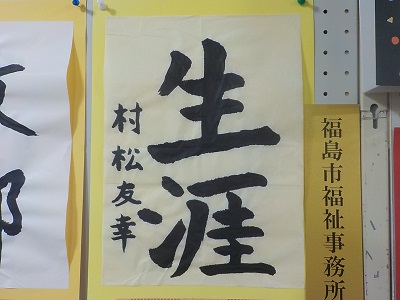 生涯
村松友幸
福島市福祉事務所